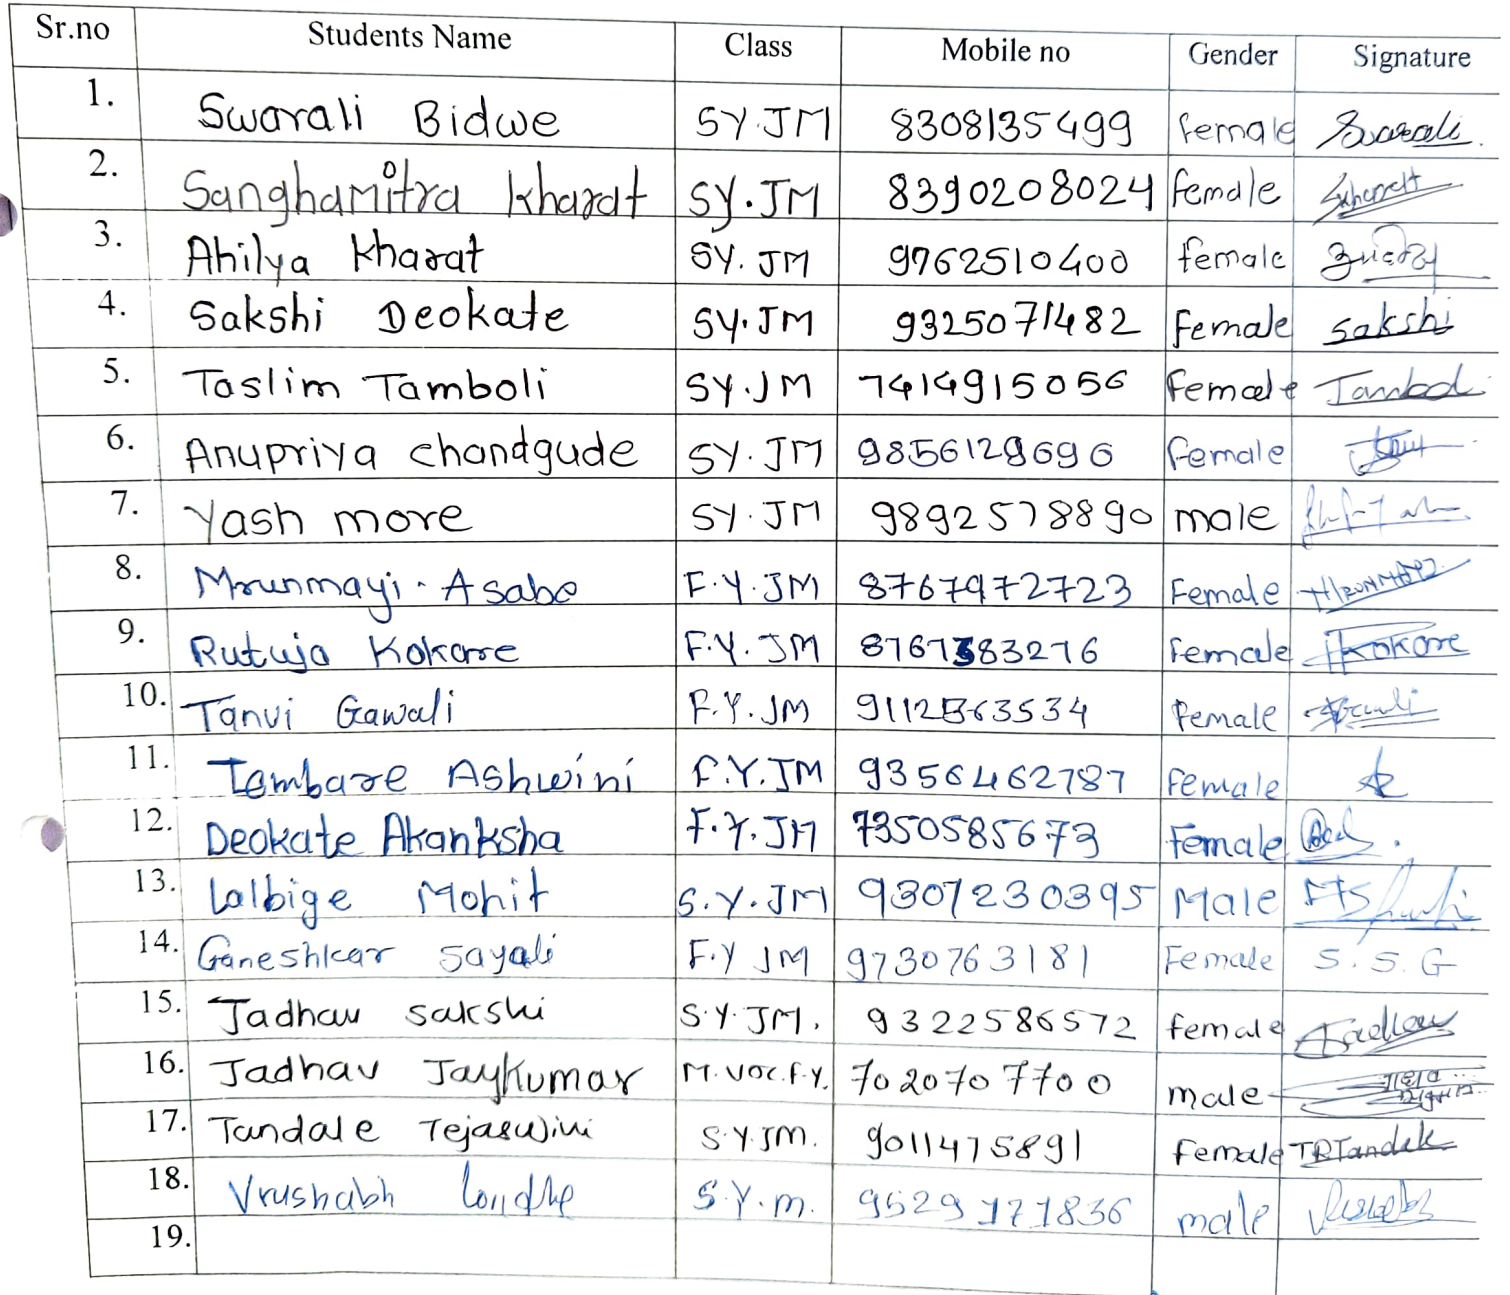 Sr.no Students Name Class Mobile no Gender Signature
1. Swarali Bidwe SY.JM 8308135499 female Swarali.
2. Sanghamitra Kharat SY.JM 8390208024 female
3. Ahilya Kharat SY.JM 9762510400 female
4. Sakshi Deokate SY.JM 9325071482 Female Sakshi
5. Taslim Tamboli SY.JM 7414915056 Female Tamboli
6. Anupriya chandgude SY.JM 9856128696 Female
7. Yash more SY.JM 9892578890 male
8. Mrunmayi. Asabe F.Y.JM 8767972723 Female
9. Rutuja Kokare F.Y.JM Female Kokare
10. Tanvi Gawali F.Y.JM Female
11. Tembare Ashwini F.Y.JM 9356462787 Female
12. Deokate Akanksha F.Y.JM 7350585673 Female
13. Lalbige Mohit S.Y.JM 9307230395 Male
14. Ganeshkar Sayali F.Y JM 9730763181 Female S.S.G
15. Jadhav sakshi S.Y.JM. 9322586572 female Jadhav
16. Jadhav Jaykumar M.VOC.F.Y. 7020707700 male
17. Tandale Tejaswini S.Y.JM. 9011475891 Female TRTandale
18. Vrushabh londhe S.Y.m. 9529171836 male
19.